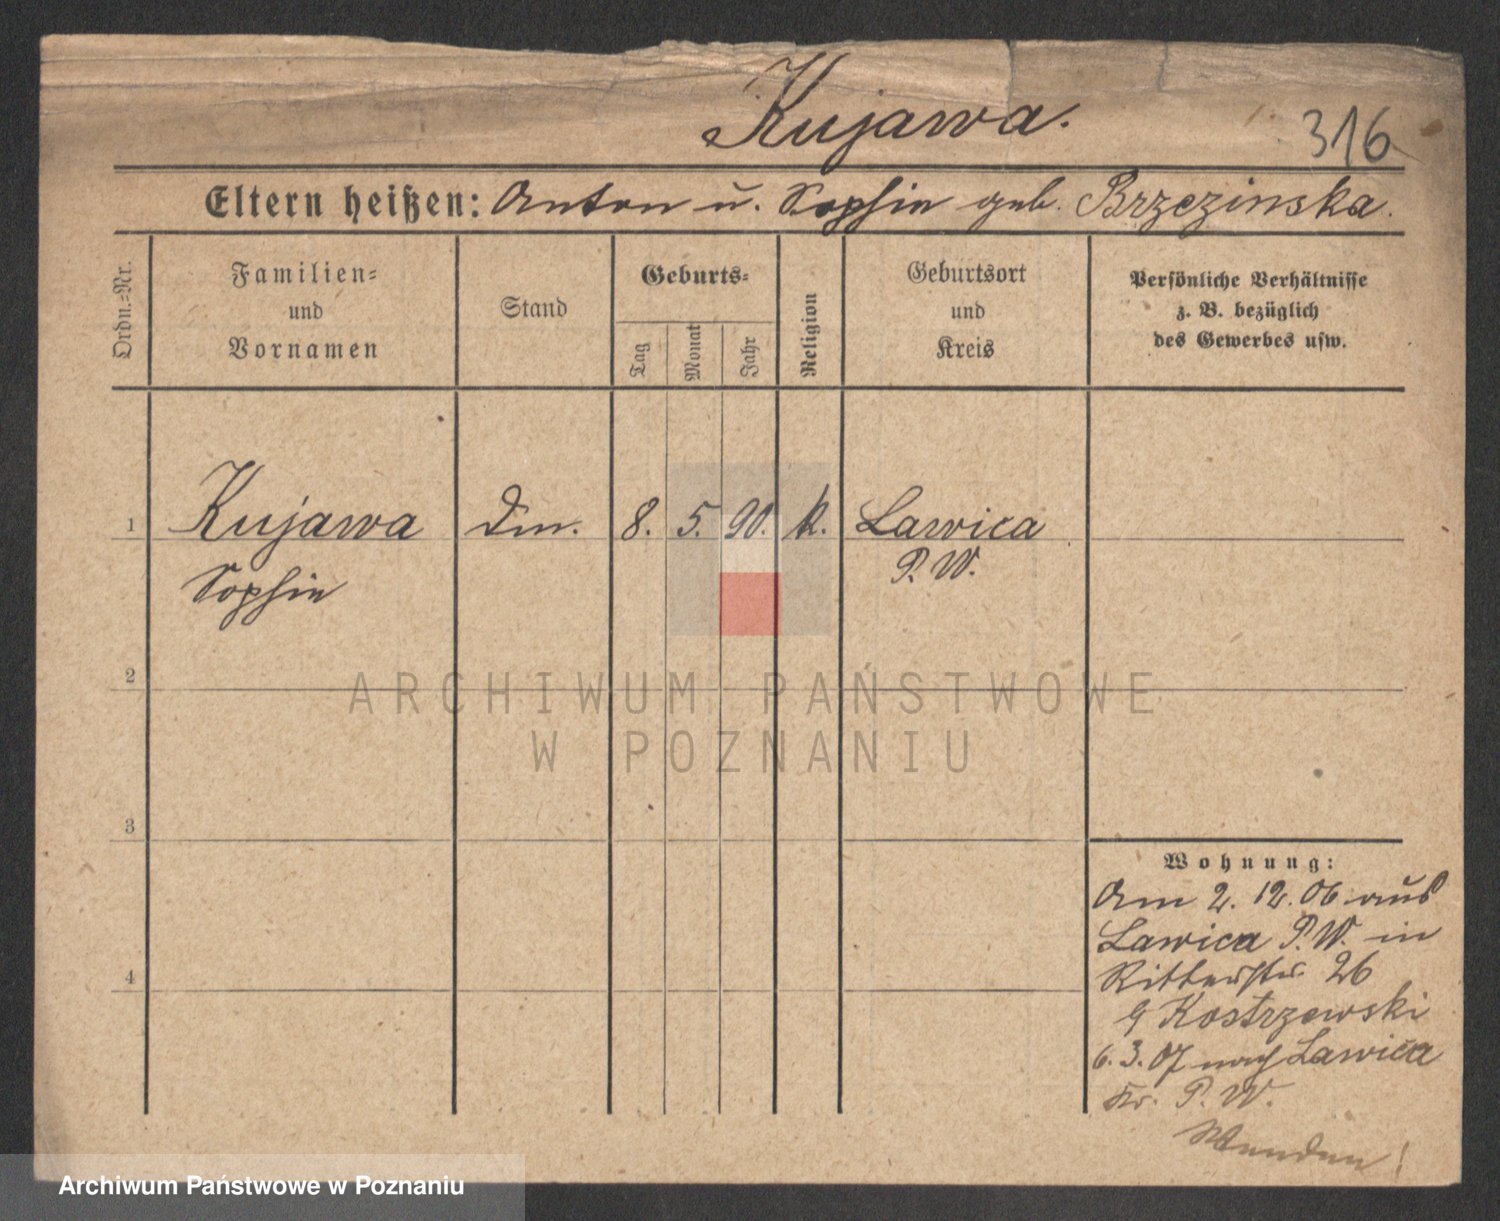 Kujawa.
316
Eltern heißen: Anton u. Sophie geb. Brzezinska.
Ordn.=Nr.
Familien=
und
Vornamen
Stand
Geburts=
Tag
Monat
Jahr
Religion
Geburtsort
und
Kreis
Persönliche Verhältnisse
z. B. bezüglich
des Gewerbes usw.
1 Kujawa Dm. 8. 5. 90. k. Lawica
Sophie P. W.
2
3
4
ARCHIWUM PAŃSTWOWE
W POZNANIU
Wohnung:
Am 2. 12. 06 aus
Lawica P. W. in
Ritterstr. 26
Kostrzewski
6. 3. 07 nach Lawica
Kr. P. W.
Wenden!
Archiwum Państwowe w Poznaniu